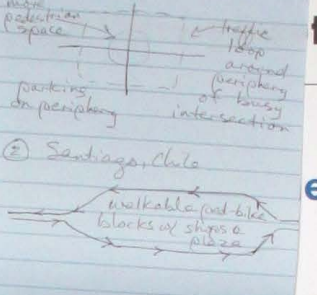 more
pedestrian
space
traffic
loop
around
periphery
of busy
intersection
parking
on periphery
② Santiago, Chile
walkable and-bike
blocks w/ shops &
plaza